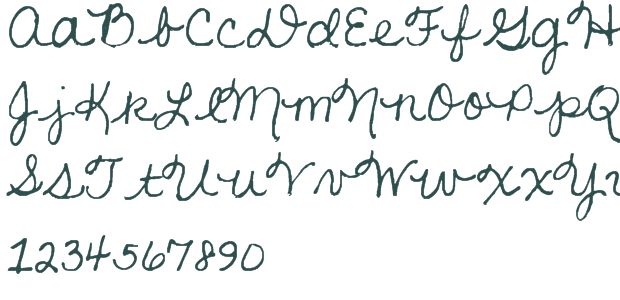 AaBbCcDdEeFfGgH
JjKkLlMmNnOoPpQ
SsTtUuVvWwXxYy
1234567890